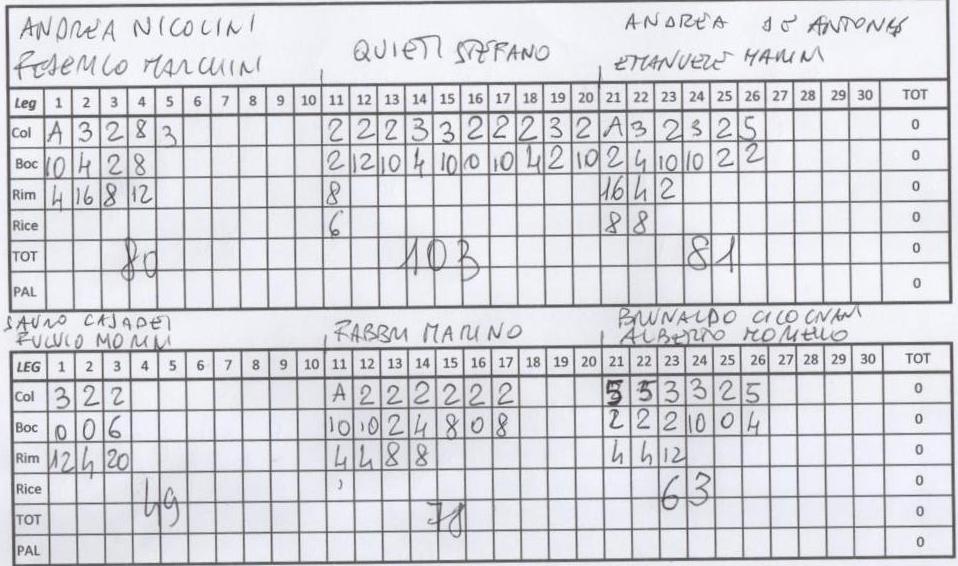 ANDREA NICOLINI QUIETI STEFANO ANDREA DE ANTONI
FEDERICO MARCHINI EMANUELE MARINI
Leg 1 2 3 4 5 6 7 8 9 10 11 12 13 14 15 16 17 18 19 20 21 22 23 24 25 26 27 28 29 30 TOT
Col A 3 2 8 3 2 2 2 3 3 2 2 2 3 2 A 3 2 3 2 5 0
Boc 10 4 2 8 2 12 10 4 10 10 10 4 2 10 2 4 10 10 2 2 0
Rim 4 16 8 12 8 16 4 2 0
Rice 6 8 8 0
TOT 80 103 81 0
PAL 0
SAURO CASADEI FABBRI MARINO BRUNALDO CICOGNANI
FULVIO MORINI ALBERTO MORELLO
LEG 1 2 3 4 5 6 7 8 9 10 11 12 13 14 15 16 17 18 19 20 21 22 23 24 25 26 27 28 29 30 TOT
Col 3 2 2 A 2 2 2 2 2 2 5 5 3 3 2 5 0
Boc 0 0 6 10 10 2 4 8 0 8 2 2 2 10 0 4 0
Rim 12 4 20 4 4 8 8 4 4 12 0
Rice 49 63 0
TOT 78 0
PAL 0